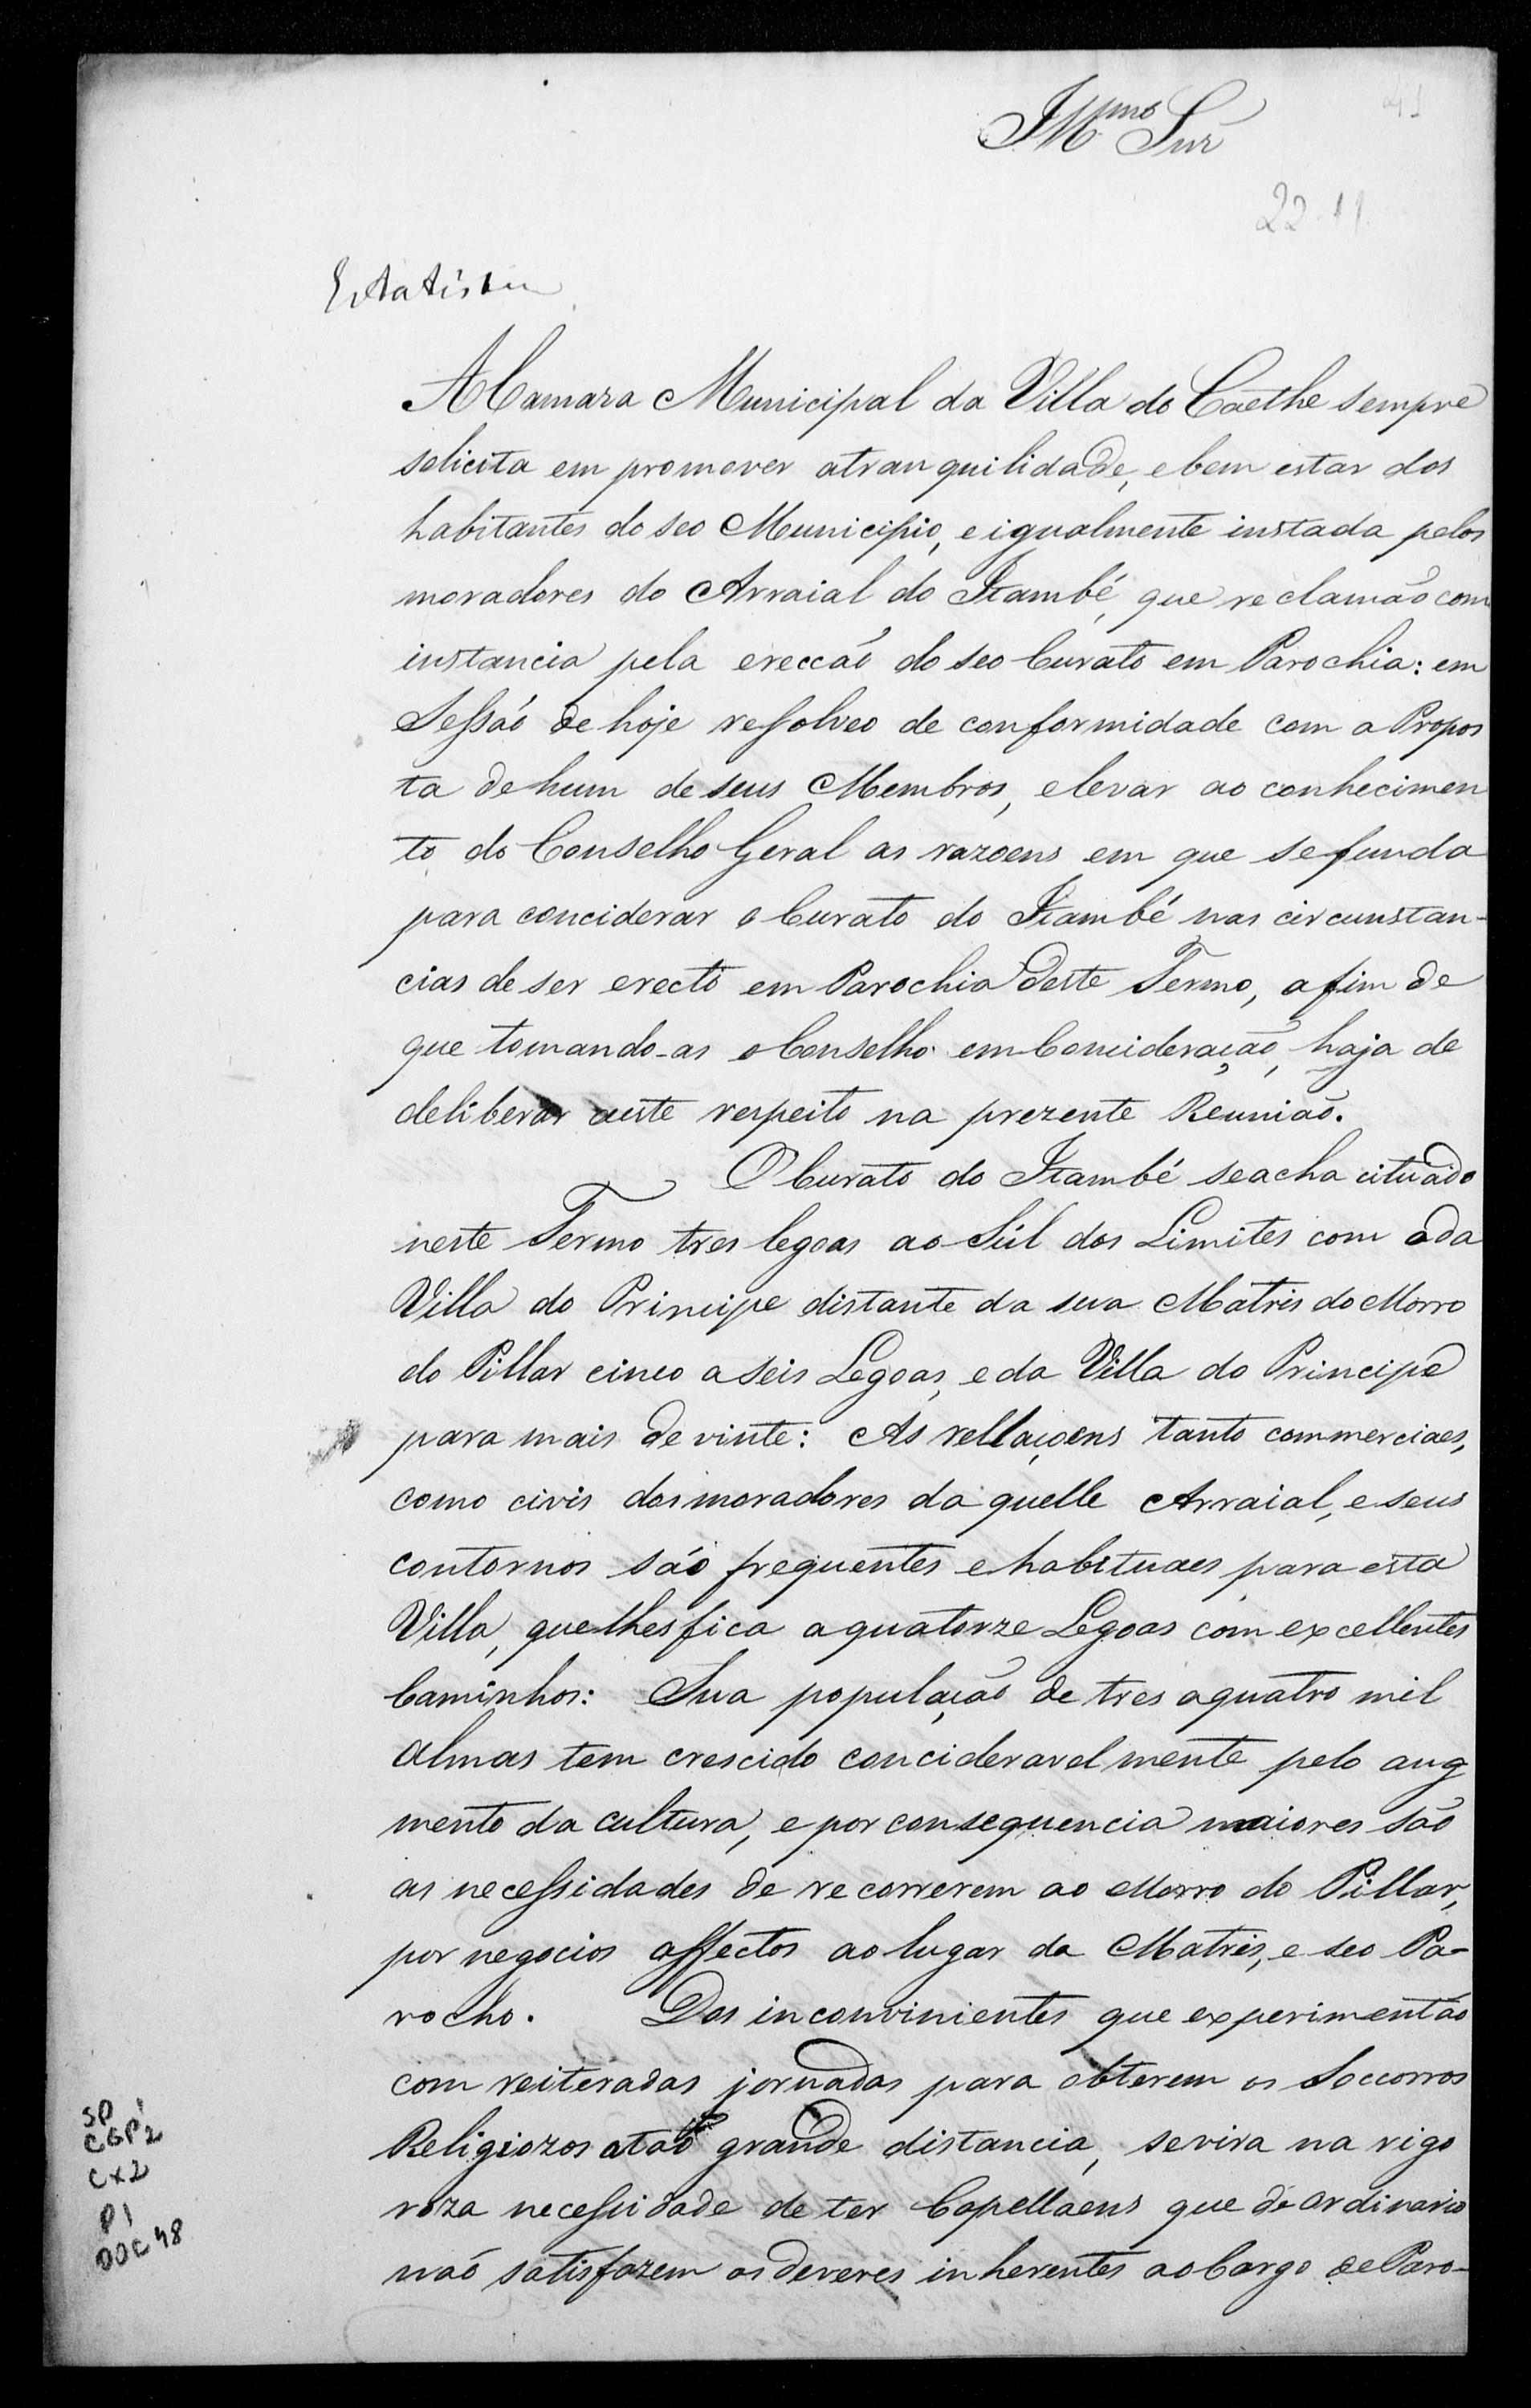 41
Illmo Snr
22-11
Estatistica
A Camara Municipal da Villa do Caethe sempre
solicita em promover atranquilidade, ebem estar dos
habitantes do seo Municipio, eigualmente instada pelos
moradores do Arraial do Itambé, que reclamão com
instancia pela erecção do seo Curato em Parochia: em
Sessão de hoje resolveo de conformidade com a Propos
ta dehum de seus Membros, elevar ao conhecimen
to do Conselho Geral as razoens em que sefunda
para conciderar o Curato do Itambé nas circunstan-
cias de ser erecto em Parochia deste Termo, afim de
que tomando-as o Conselho em Concideração, haja de
deliberar aeste respeito na prezente Reunião.
O Curato do Itambé seacha cituado
neste Termo tres legoas ao Sul dos Limites com oda
Villa do Principe distante da sua Matris do Morro
do Pillar cinco aseis Legoas, eda Villa do Principe
para mais devinte: As rellaçoens tanto commerciaes,
como civis dosmoradores daquelle Arraial, eseus
contornos são frequentes ehabituaes para esta
Villa, quelhesfica aquatorze Legoas com excellentes
Caminhos: Sua população de tres aquatro mil
almas tem crescido concideravelmente pelo aug
mento da cultura, epor consequencia maiores são
as necessidades de recorrerem ao Morro do Pillar,
por negocios affectos aolugar da Matris, e seo Pa-
rocho. Dos inconvinientes que experimentão
com reiteradas jornadas para obterem os Soccorros
Religiozos atão grande distancia, sevira na rigo
roza necessidade de ter Capellaens que de ordinario
não satisfazem osdeveres inherentes ao Cargo de Paro-
SP
CGP2
CX2
P1
DOC 48